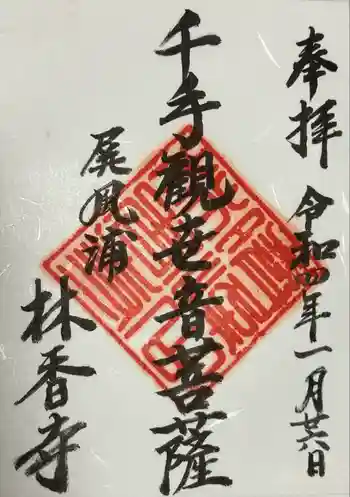 奉拝
令和四年一月廿六日
千手観世音菩薩
屏風浦
林香寺